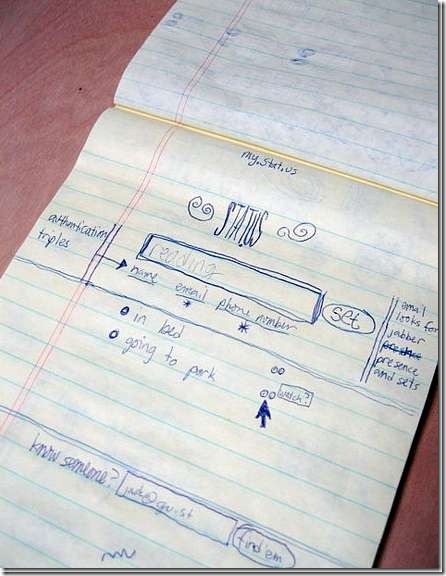 my.stat.us
STATUS
authentication
triples
reading
name email phone number
* *
set
email
looks for
jabber
presence
and sets
in bed
going to park
watch?
know someone?
find 'em